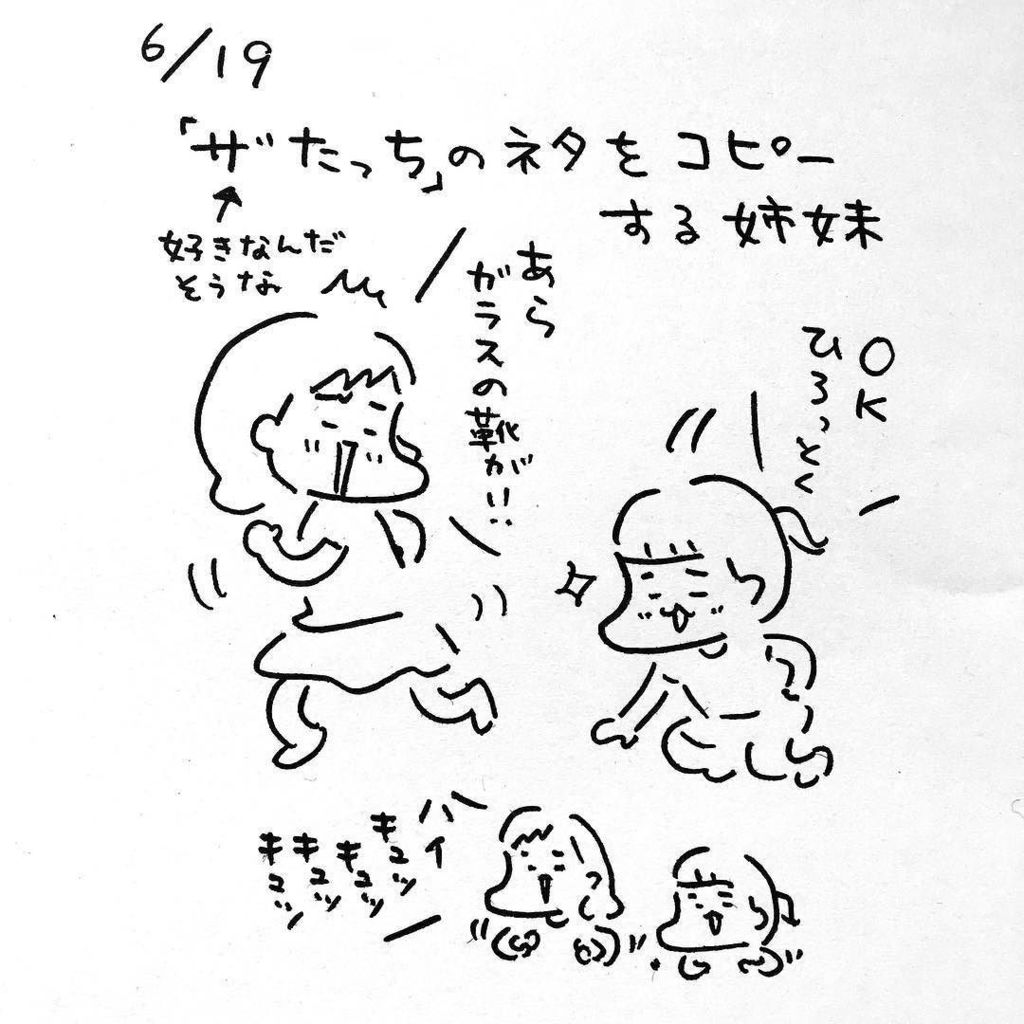 6/19
「ザたっち」のネタをコピー
する姉妹
↑
好きなんだ
そうな
あら
ガラスの靴が!!
OK
ひろっとく
ハイ
キュッ
キュッ
キュッ
キュッ